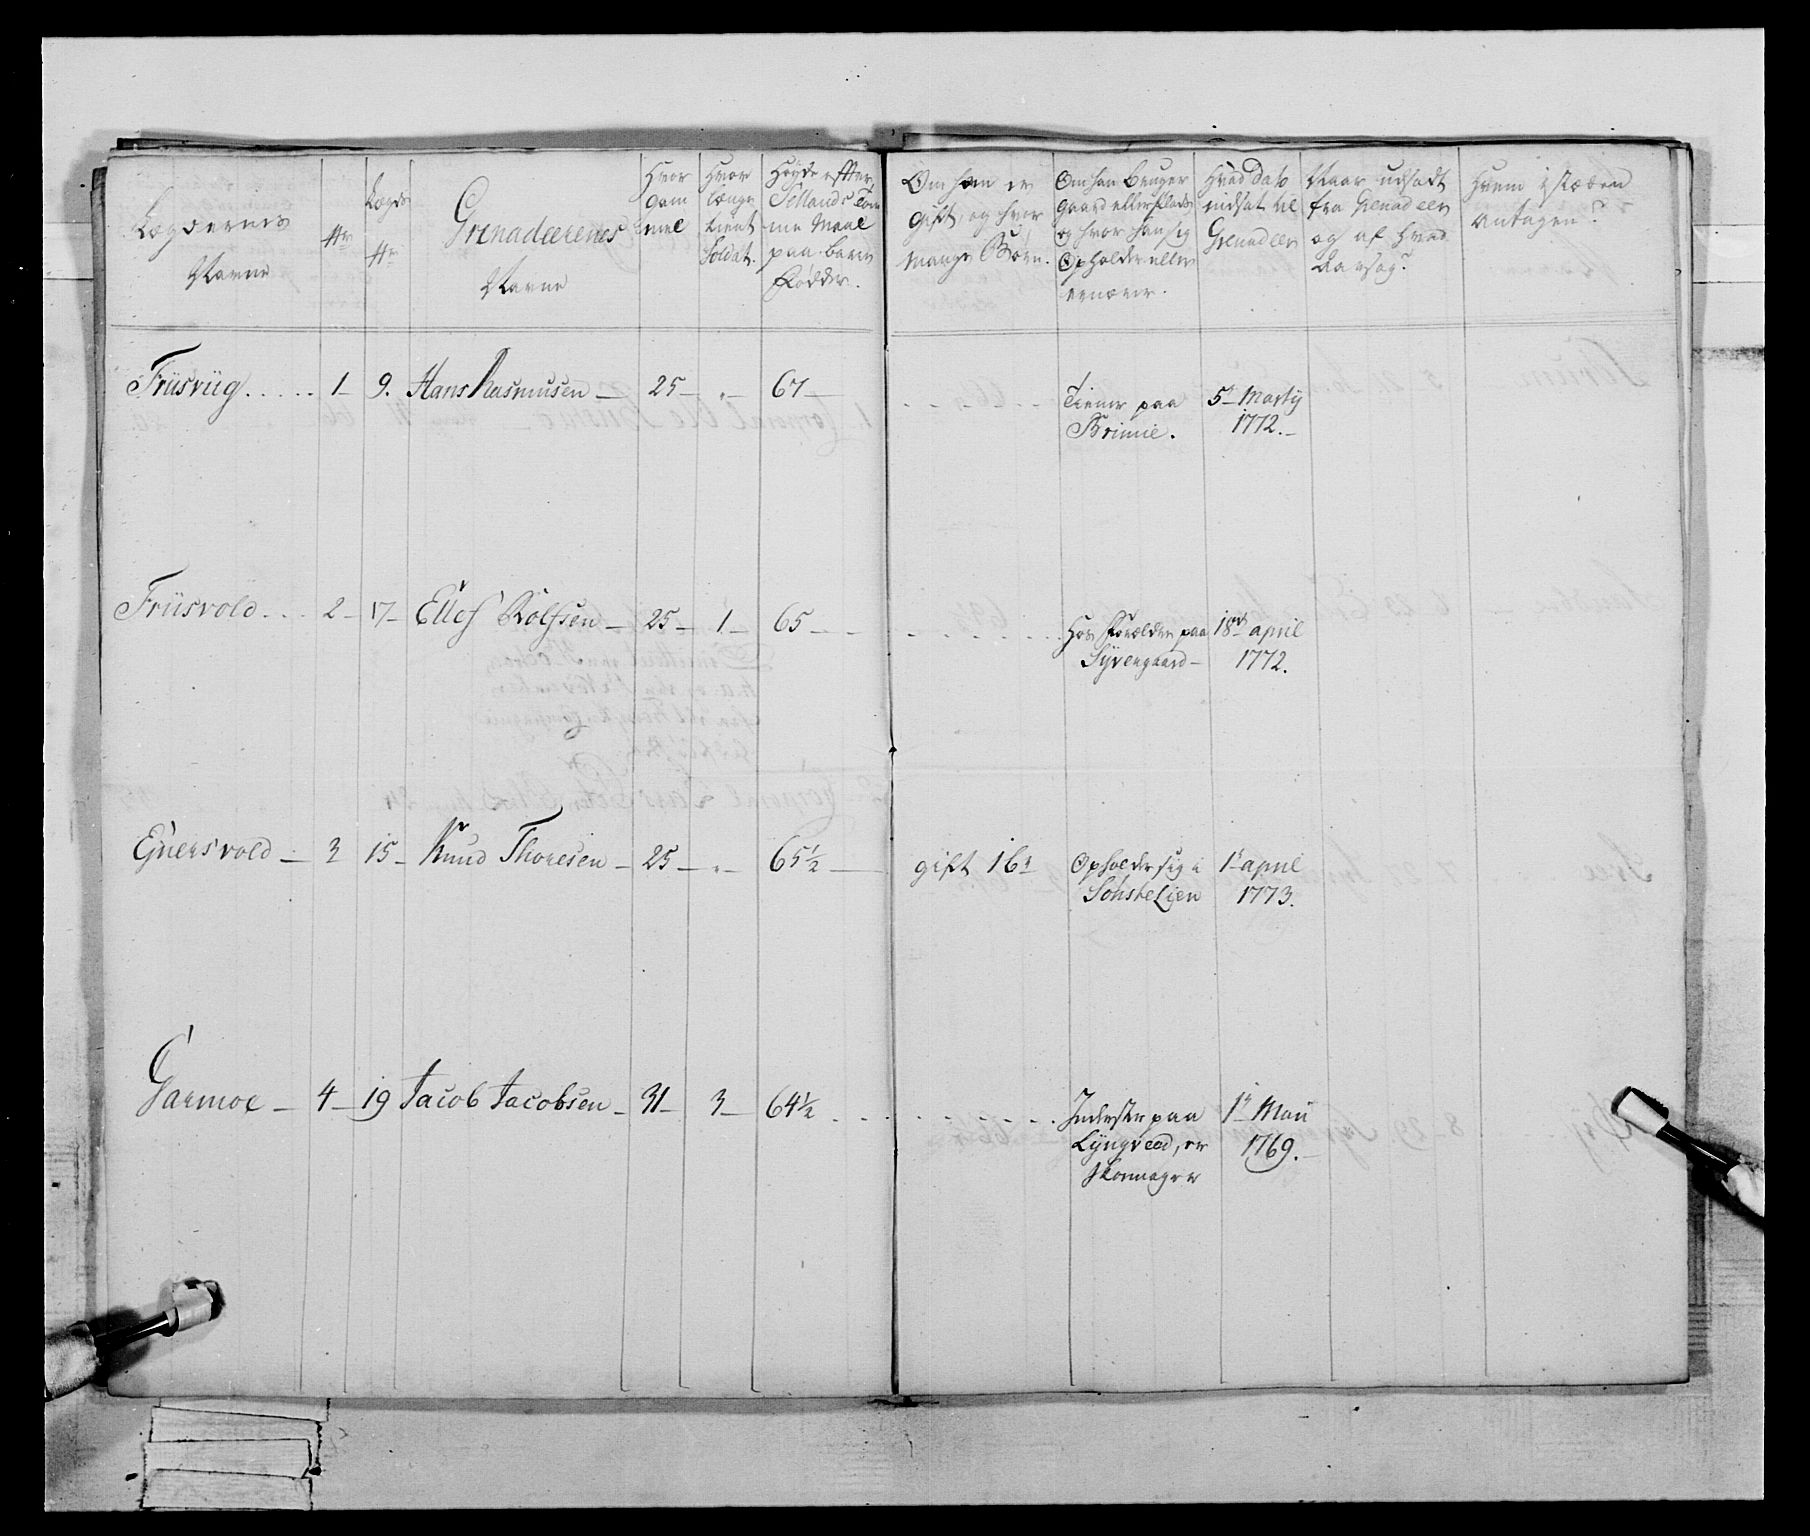 Lægdernes
Navne
No
Lægds
No
Grenadeerenes
Navne
Hvor
gam
mel
Hvor
længe
tient
Soldat.
Høyde efter
Sellands Tom
me Maal
paa bare
Fødder.
Om han er
gift, og hvor
mange Børn.
Om han bruger
gaard eller plads
og hvor han sig
opholder eller
ernærer.
Hvad dato
indsat til
Grenadeer
Naar udsadt
fra Grenadeer
og af hvad
Aarsag?
Hvem i stæden
antagen?
Friisviig..... 1 9. Hans Rasmusen 25 „ 67 Tiener paa 5te Marty
Brimie. 1772.
Friisvold... 2 17 Ellef Rolfsen 25 1 65 Hos Forældre paa 18de april
Syvengaard 1772.
Ejnersvold 3 15 Knud Thoresen 25 „ 65½ gift 1 b: Opholder sig i 1te april
Sønste Lien 1773.
Garmoe 4 19 Jacob Jacobsen 31 3 64½ Inderste paa 1te Maii
Lyngved, er 1769.
Skomager